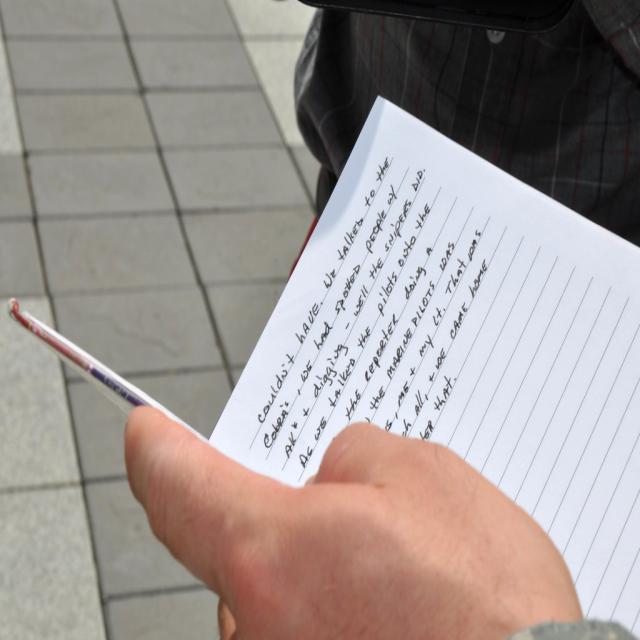 couldn't have. We talked to the
Cobra's - we had spotted people w/
AK's + digging - well the snipers did.
As we talked the pilots onto the
the reporter doing a
the marine pilots was
, me + my Lt. That was
all, + we came home
that.